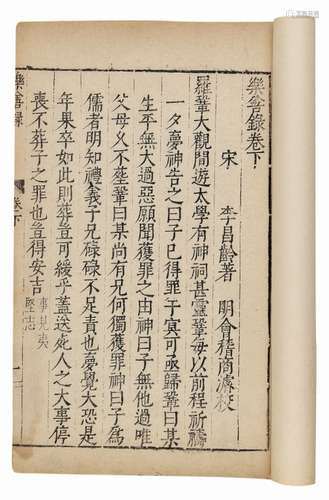 樂善錄卷下
宋 李昌齡著 明會稽商濬校
羅鞏大觀間遊太學有神祠甚靈鞏每以前程祈禱
一夕夢神告之曰子已得罪于冥可亟歸鞏曰某
生平無大過惡願聞獲罪之由神曰子無他過唯
父母久不葬鞏曰某尚有兄何獨獲罪神曰子為
儒者明知禮義子兄碌碌不足責也夢覺大恐是
年果卒如此則葬豈可緩乎蓋送死人之大事停
喪不葬子之罪也豈得安吉 事見夷
堅志
樂善錄 卷下 一